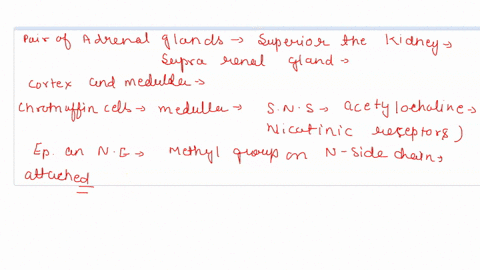 Pair of Adrenal glands → Superior the Kidney →
Supra renal gland →
Cortex and medulla →
Chromaffin cells → medulla → S.N.S → acetylcholine →
Nicotinic receptors)
Ep. an N.E → Methyl group on N-side chain,
attached